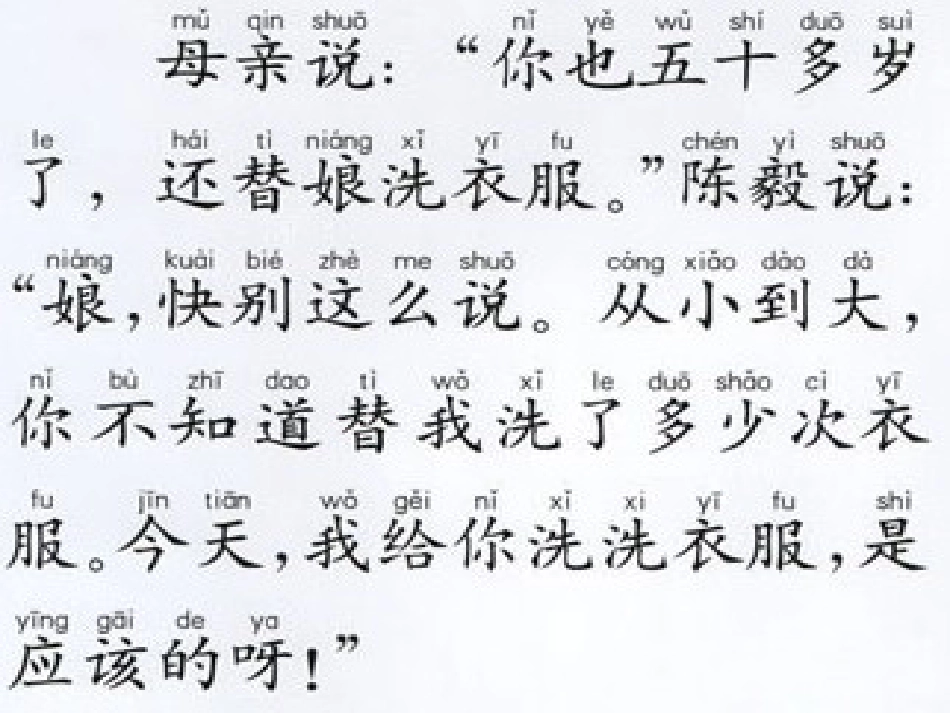 mǔ qin shuō nǐ yě wǔ shí duō suì
母亲说：“你也五十多岁
le hái tì niáng xǐ yī fu chén yì shuō
了，还替娘洗衣服。”陈毅说：
niáng kuài bié zhè me shuō cóng xiǎo dào dà
“娘，快别这么说。从小到大，
nǐ bù zhī dao tì wǒ xǐ le duō shǎo cì yī
你不知道替我洗了多少次衣
fu jīn tiān wǒ gěi nǐ xǐ xi yī fu shì
服。今天，我给你洗洗衣服，是
yīng gāi de ya
应该的呀！”